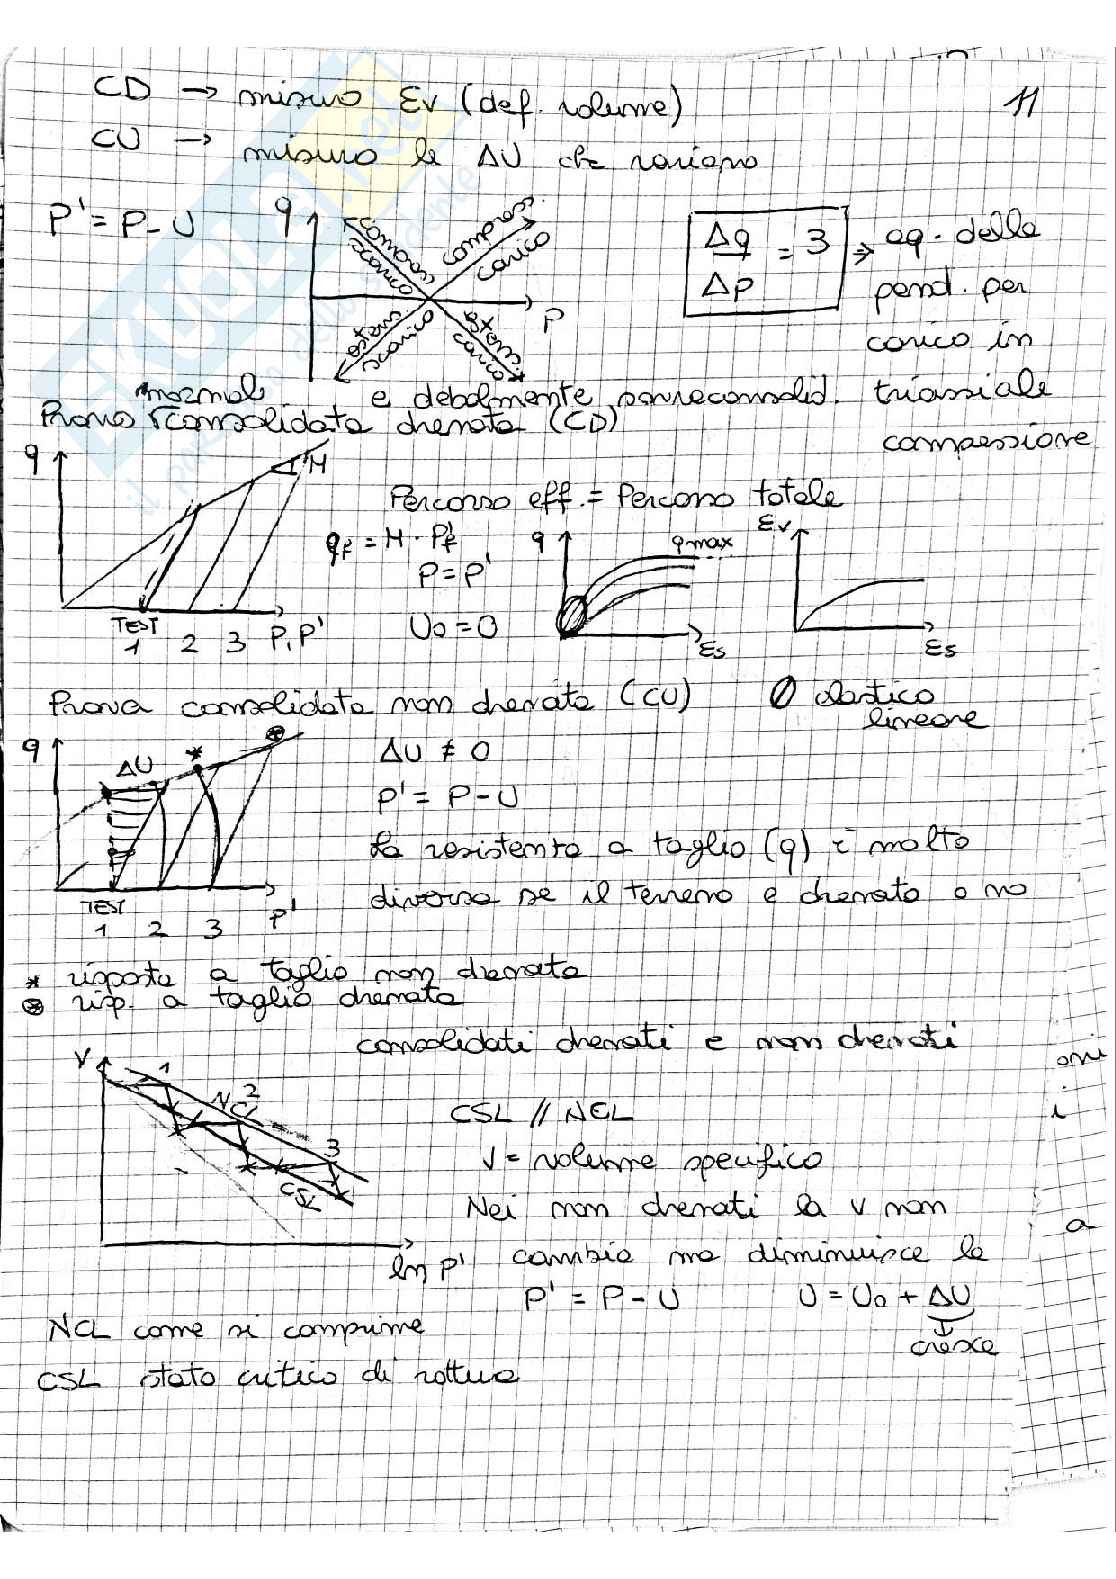 CD → misuro Ev (def. volume)
11
CU → misuro le ΔU che variano
P' = P - U
q
compress. scarico
compress. carico
estens. scarico
estens. carico
P
Δq/Δp = 3 ⇒ eq. della pend. per carico in triassiale compressione
normal. e debolmente sovraconsolid.
Prova consolidata drenata (CD)
q
M
TEST
1 2 3 P, P'
Percorso eff. = Percorso totale
qf = M · P'f
P = P'
U0 = 0
q
qmax
Es
Ev
Es
Prova consolidata non drenata (CU)
0 elastico lineare
q
ΔU
*
⊛
TEST
1 2 3 P'
ΔU ≠ 0
P' = P - U
La resistenza a taglio (q) è molto
diversa se il terreno è drenato o no
* risposta a taglio non drenata
⊛ risp. a taglio drenata
consolidati drenati e non drenati
V
1
2
3
NCL
CSL
ln P'
CSL // NCL
V = volume specifico
Nei non drenati la v non
cambia ma diminuisce la
P' = P - U
U = U0 + ΔU
↓
cresce
NCL come si comprime
CSL stato critico di rottura